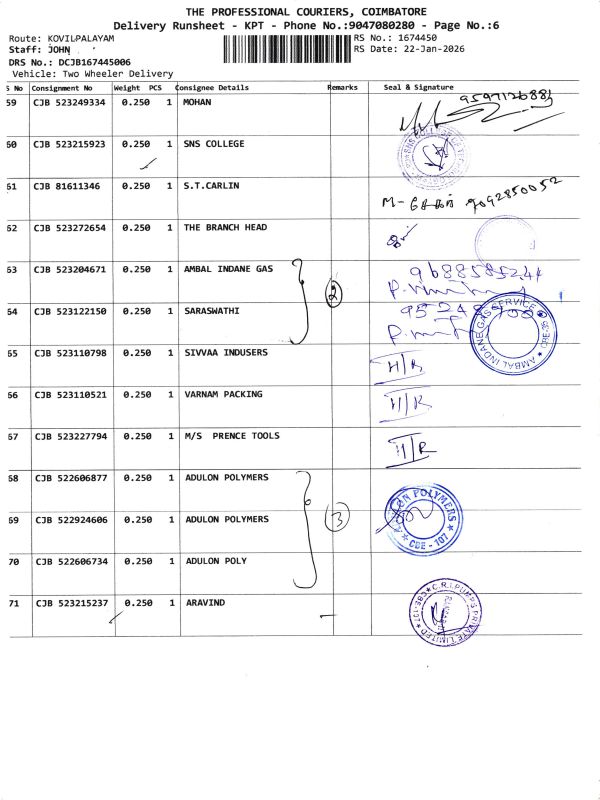 THE PROFESSIONAL COURIERS, COIMBATORE
Delivery Runsheet - KPT - Phone No.:9047080280 - Page No.:6
Route: KOVILPALAYAM
RS No.: 1674450
Staff: JOHN
RS Date: 22-Jan-2026
DRS No.: DCJB167445006
Vehicle: Two Wheeler Delivery
S No Consignment No Weight PCS Consignee Details Remarks Seal & Signature
59 CJB 523249334 0.250 1 MOHAN 9597126881
60 CJB 523215923 0.250 1 SNS COLLEGE
61 CJB 81611346 0.250 1 S.T.CARLIN M- சேகர் 9092850052
62 CJB 523272654 0.250 1 THE BRANCH HEAD
63 CJB 523204671 0.250 1 AMBAL INDANE GAS 2 9688585244
64 CJB 523122150 0.250 1 SARASWATHI AMBAL INDANE GAS SERVICE
65 CJB 523110798 0.250 1 SIVVAA INDUSERS H/R
66 CJB 523110521 0.250 1 VARNAM PACKING H/R
67 CJB 523227794 0.250 1 M/S PRENCE TOOLS H/R
68 CJB 522606877 0.250 1 ADULON POLYMERS
69 CJB 522924606 0.250 1 ADULON POLYMERS 3 ADULON POLYMERS CBE - 107
70 CJB 522606734 0.250 1 ADULON POLY
71 CJB 523215237 0.250 1 ARAVIND C.R.I.PUMPS PRIVATE LIMITED CBE-107